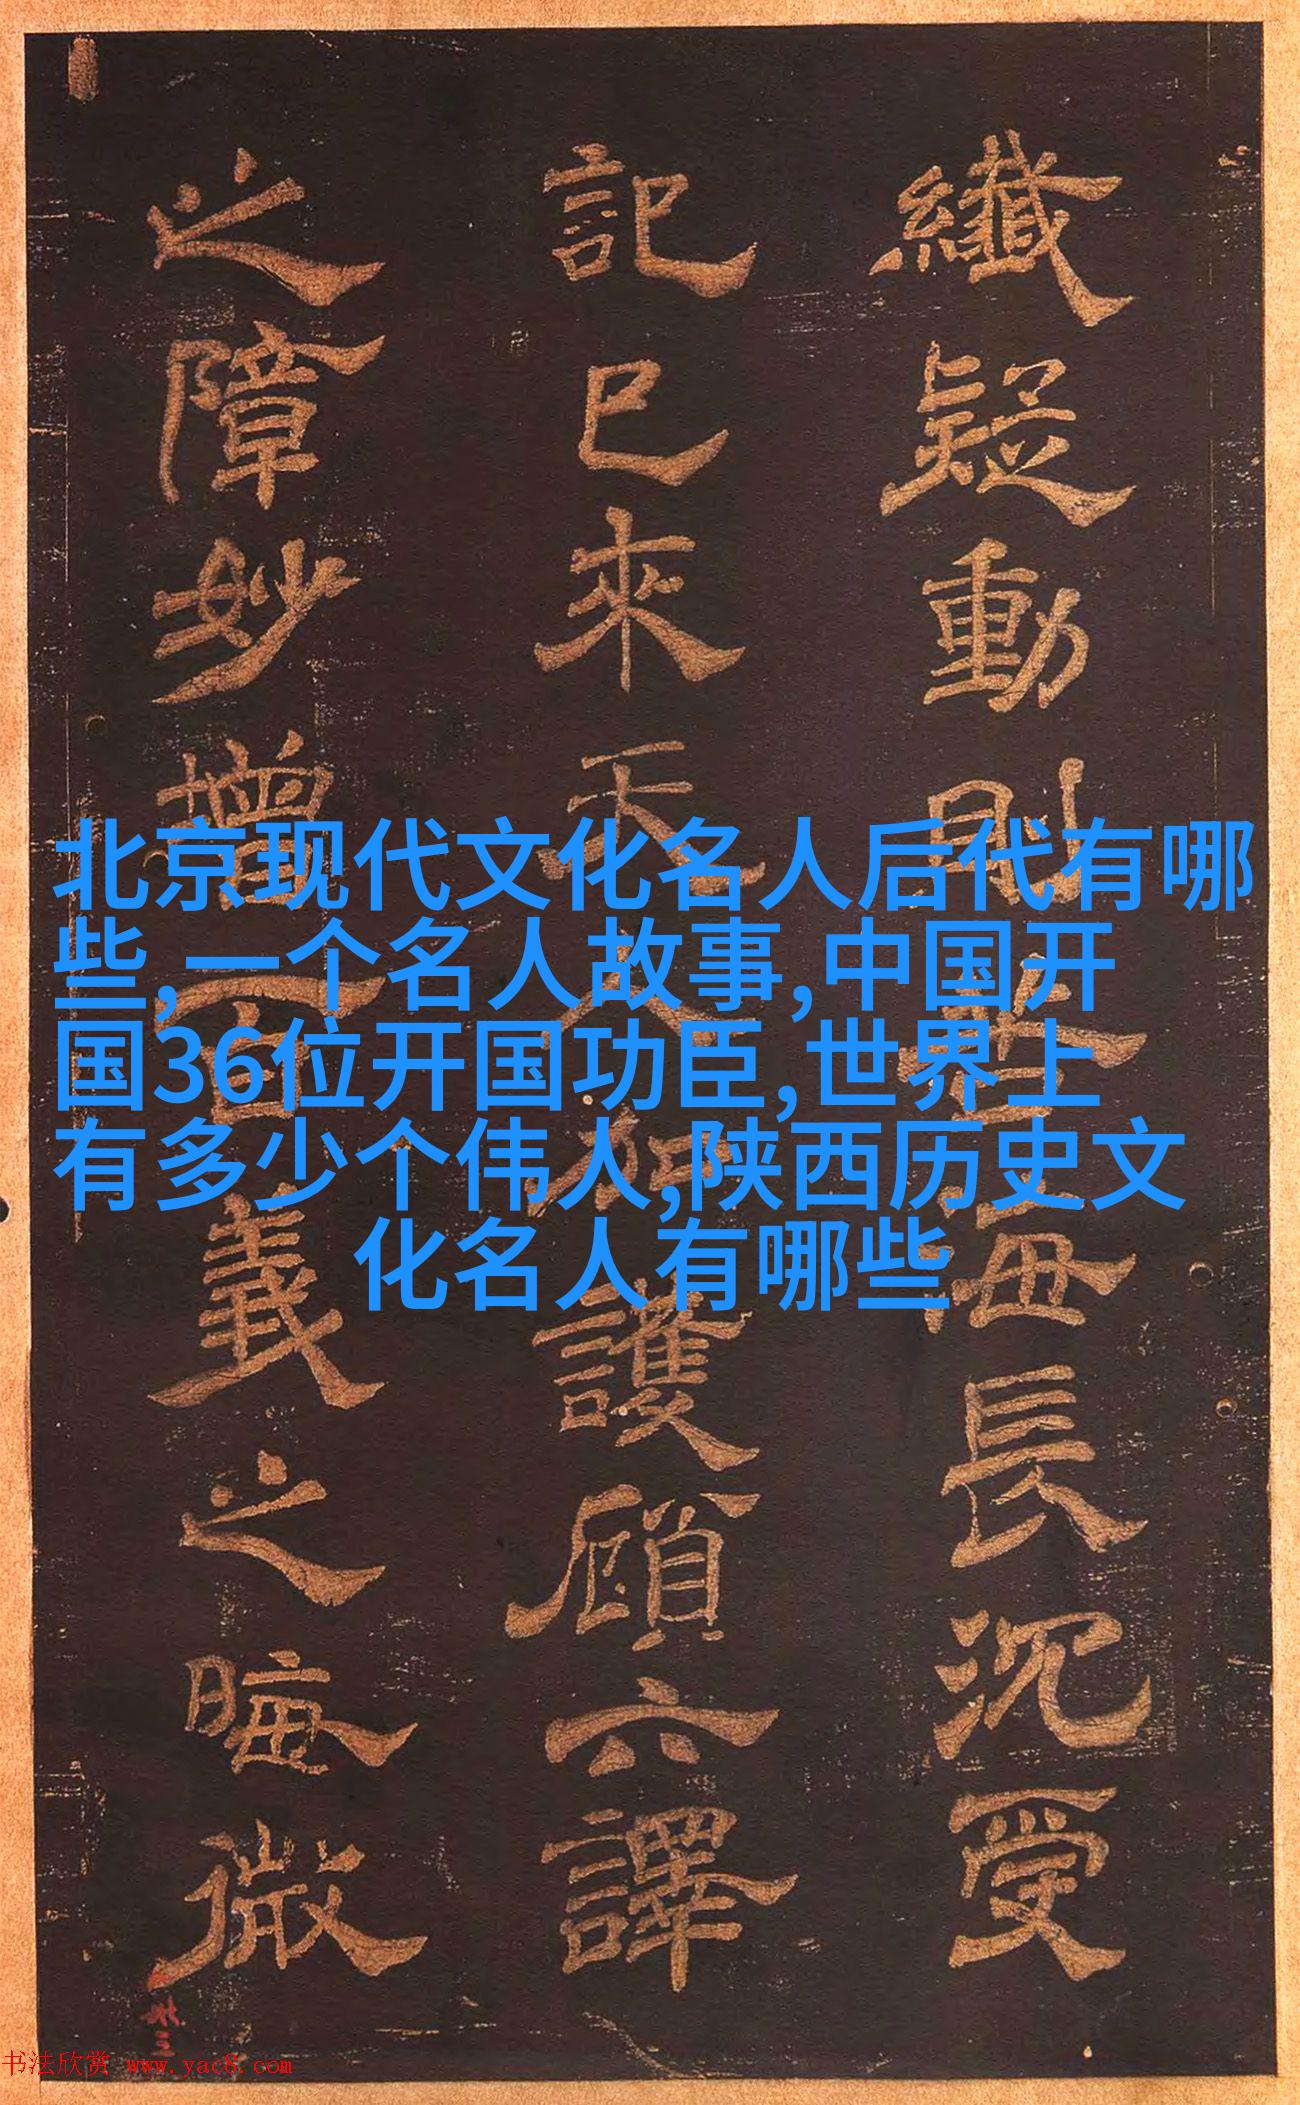 纖疑動則
長沉受
記已來天
護願六譯
之障妙增
義之晦微
北京现代文化名人后代有哪
些,一个名人故事,中国开
国36位开国功臣,世界上
有多少个伟人,陕西历史文
化名人有哪些
书法欣赏 www.yac8.com